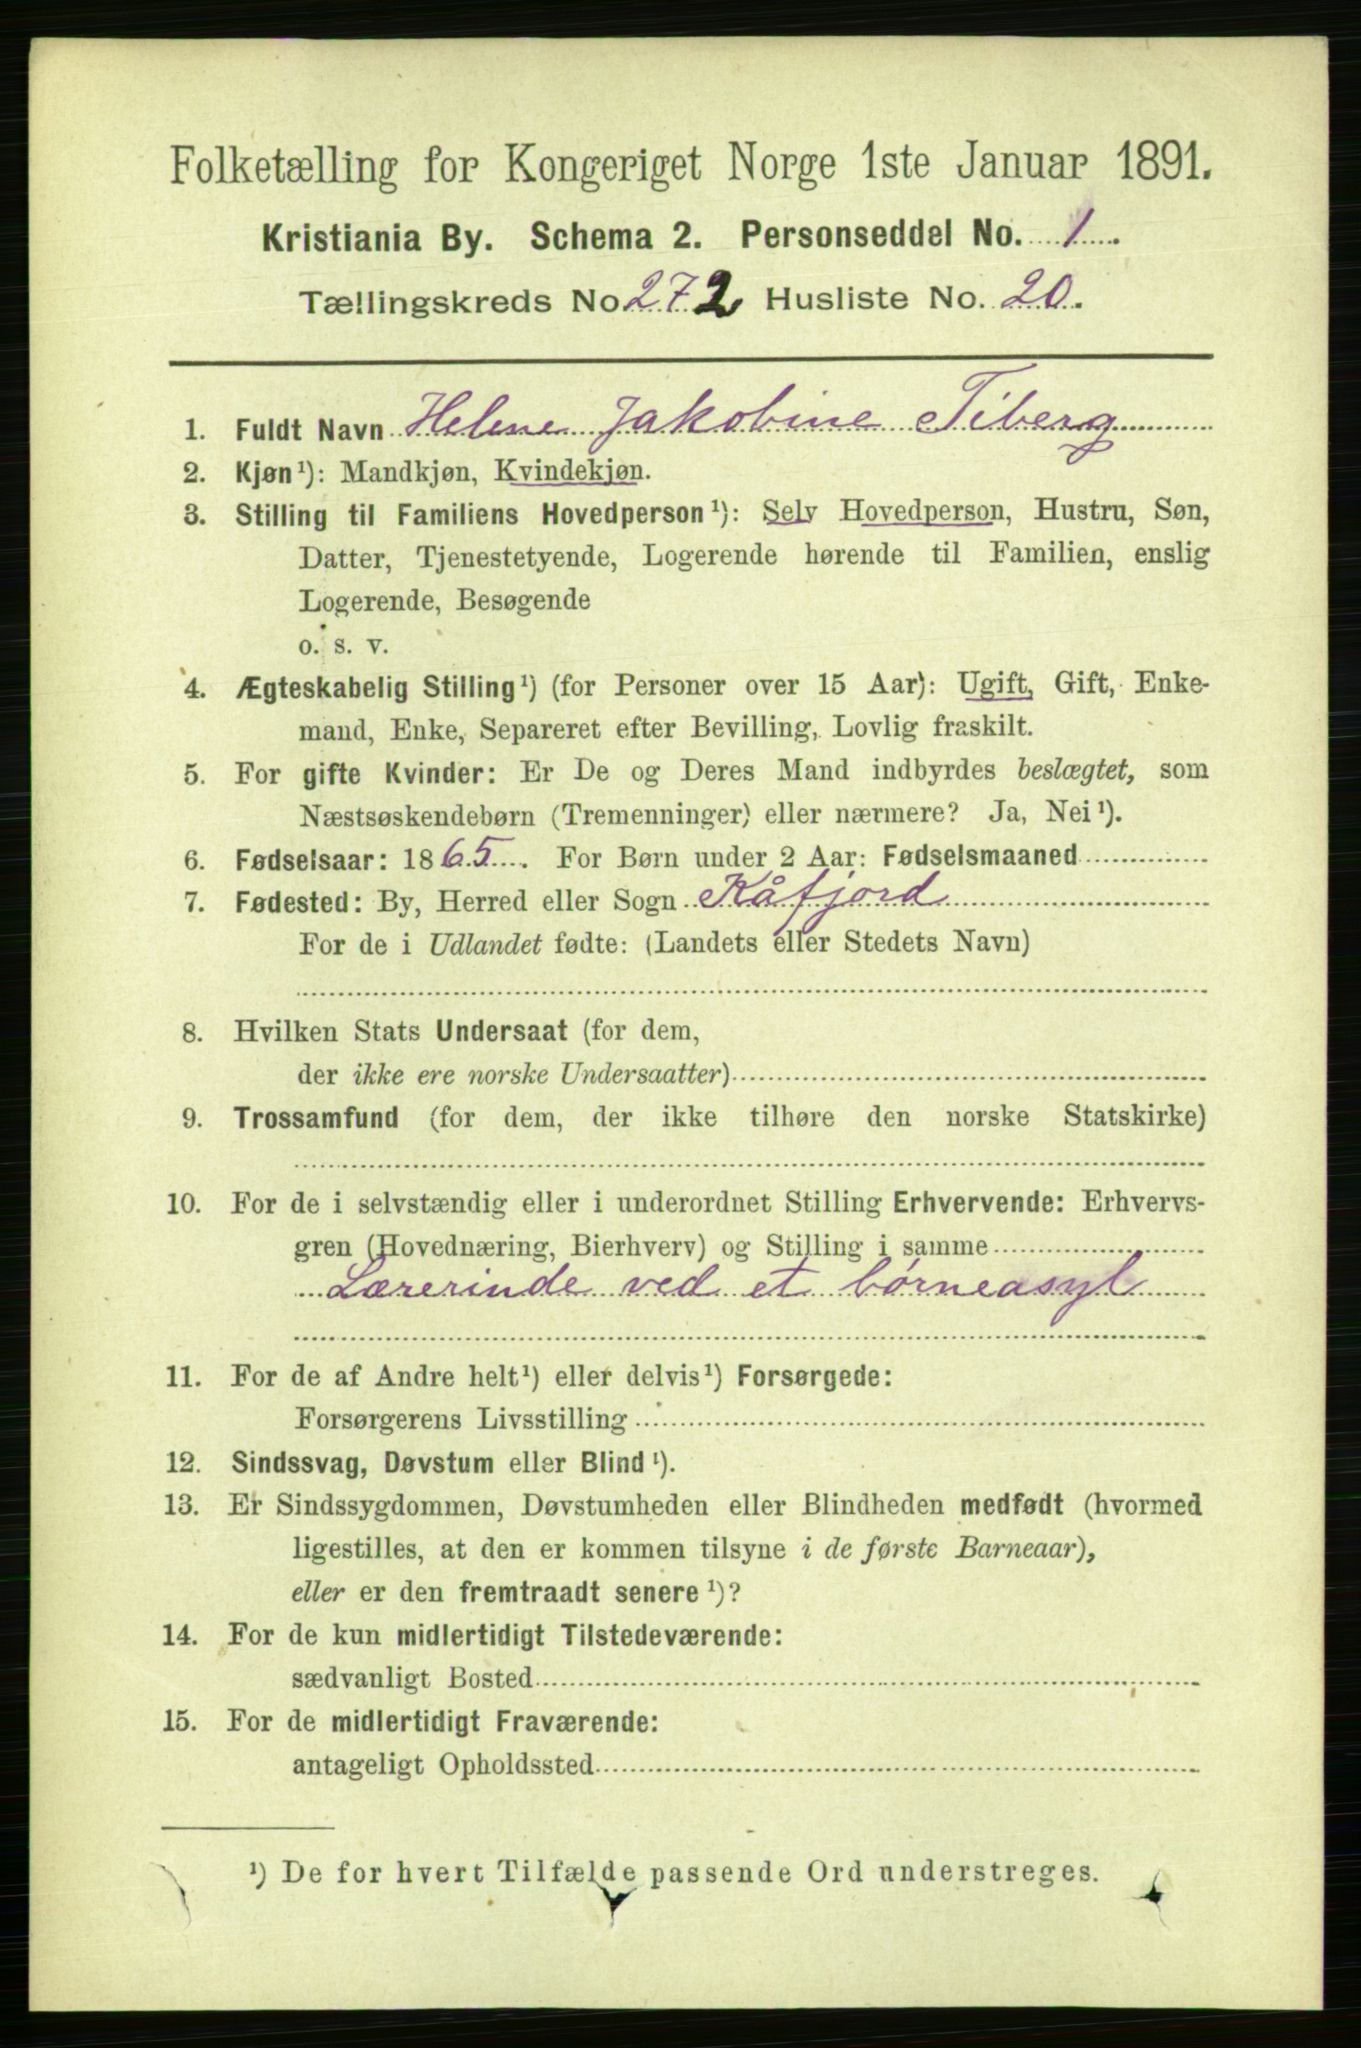 Folketælling for Kongeriget Norge 1ste Januar 1891.
Kristiania By. Schema 2. Personseddel No. 1.
Tællingskreds No. 272 Husliste No. 20.
1. Fuldt Navn Helene Jakobine Tiberg
2. Kjøn¹): Mandkjøn, Kvindekjøn.
3. Stilling til Familiens Hovedperson¹): Selv Hovedperson, Hustru, Søn,
Datter, Tjenestetyende, Logerende hørende til Familien, enslig
Logerende, Besøgende
o. s. v.
4. Ægteskabelig Stilling¹) (for Personer over 15 Aar): Ugift, Gift, Enke-
mand, Enke, Separeret efter Bevilling, Lovlig fraskilt.
5. For gifte Kvinder: Er De og Deres Mand indbyrdes beslægtet, som
Næstsøskendebørn (Tremenninger) eller nærmere? Ja, Nei¹).
6. Fødselsaar: 1865. For Børn under 2 Aar: Fødselsmaaned
7. Fødested: By, Herred eller Sogn Kåfjord
For de i Udlandet fødte: (Landets eller Stedets Navn)
8. Hvilken Stats Undersaat (for dem,
der ikke ere norske Undersaatter)
9. Trossamfund (for dem, der ikke tilhøre den norske Statskirke)
10. For de i selvstændig eller i underordnet Stilling Erhvervende: Erhvervs-
gren (Hovednæring, Bierhverv) og Stilling i samme
Lærerinde ved et børneasyl
11. For de af Andre helt¹) eller delvis¹) Forsørgede:
Forsørgerens Livsstilling
12. Sindssvag, Døvstum eller Blind¹).
13. Er Sindssygdommen, Døvstumheden eller Blindheden medfødt (hvormed
ligestilles, at den er kommen tilsyne i de første Barneaar),
eller er den fremtraadt senere¹)?
14. For de kun midlertidigt Tilstedeværende:
sædvanligt Bosted
15. For de midlertidigt Fraværende:
antageligt Opholdssted
¹) De for hvert Tilfælde passende Ord understreges.